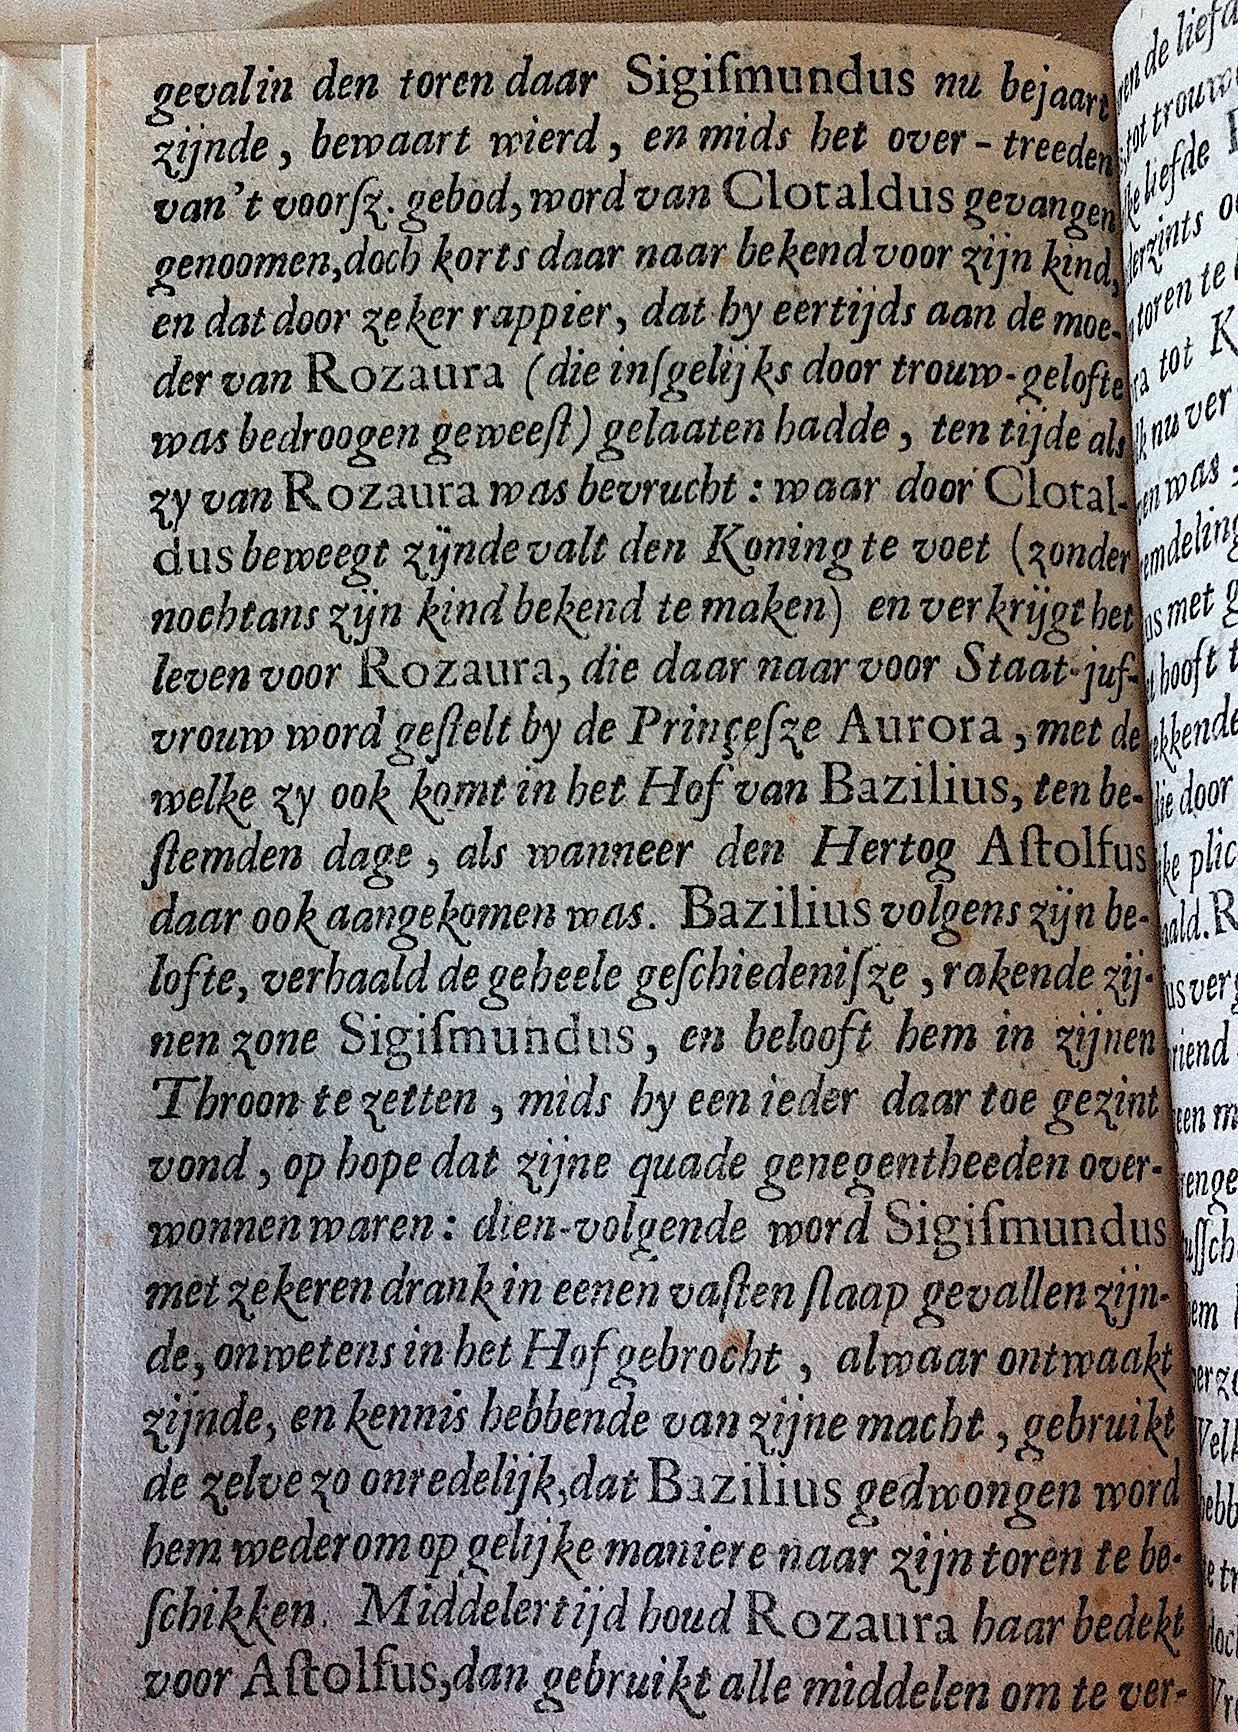 gevalin den toren daar Sigiſmundus nu bejaart
zijnde, bewaart wierd, en mids het over-treeden
van't voorſz. gebod, word van Clotaldus gevangen
genoomen, doch korts daar naar bekend voor zijn kind,
en dat door zeker rappier, dat hy eertijds aan de moe-
der van Rozaura (die inſgelijks door trouw-gelofte
was bedroogen geweeſt) gelaaten hadde, ten tijde als
zy van Rozaura was bevrucht: waar door Clotal-
dus beweegt zijnde valt den Koning te voet (zonder
nochtans zijn kind bekend te maken) en verkrijgt het
leven voor Rozaura, die daar naar voor Staat-juf-
vrouw word geſtelt by de Prinçeſze Aurora, met de
welke zy ook komt in het Hof van Bazilius, ten be-
ſtemden dage, als wanneer den Hertog Aſtolfus
daar ook aangekomen was. Bazilius volgens zijn be-
lofte, verhaald de geheele geſchiedeniſze, rakende zij-
nen zone Sigiſmundus, en belooft hem in zijnen
Throon te zetten, mids hy een ieder daar toe gezint
vond, op hope dat zijne quade genegentheeden over-
wonnen waren: dien-volgende word Sigiſmundus
met zekeren drank in eenen vaſten ſlaap gevallen zijn-
de, onwetens in het Hof gebrocht, alwaar ontwaakt
zijnde, en kennis hebbende van zijne macht, gebruikt
de zelve zo onredelijk, dat Bazilius gedwongen word
hem wederom op gelijke maniere naar zijn toren te be-
ſchikken. Middelertijd houd Rozaura haar bedekt
voor Aſtolfus, dan gebruikt alle middelen om te ver-